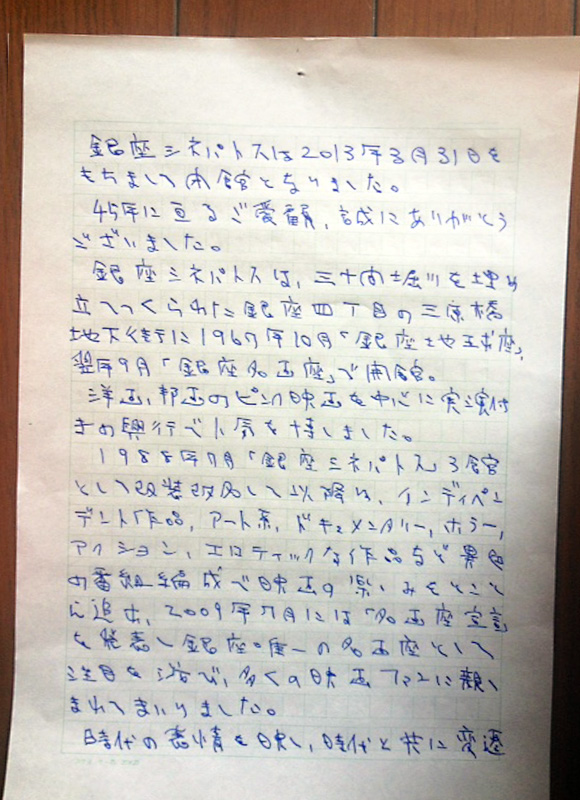 銀座シネパトスは2013年3月31日を
もちまして閉館となりました。
45年に亘るご愛顧、誠にありがとう
ございました。
銀座シネパトスは、三十間堀川を埋め
立てつくられた銀座四丁目の三原橋
地下街に1967年10月「銀座地球座」、
翌年9月「銀座名画座」で開館。
洋画、邦画のピンク映画を中心に実演付
きの興行で人気を博しました。
1988年7月「銀座シネパトス」3館
として改装改名して以降は、インディペン
デント作品、アート系、ドキュメンタリー、ホラー、
アクション、エロティックな作品など異色
の番組編成で映画の楽しみをとこと
ん追求、2009年7月には「名画座宣言」
を発表し銀座唯一の名画座として
注目を浴び、多くの映画ファンに親し
まれてまいりました。
時代の表情を映し、時代と共に変遷